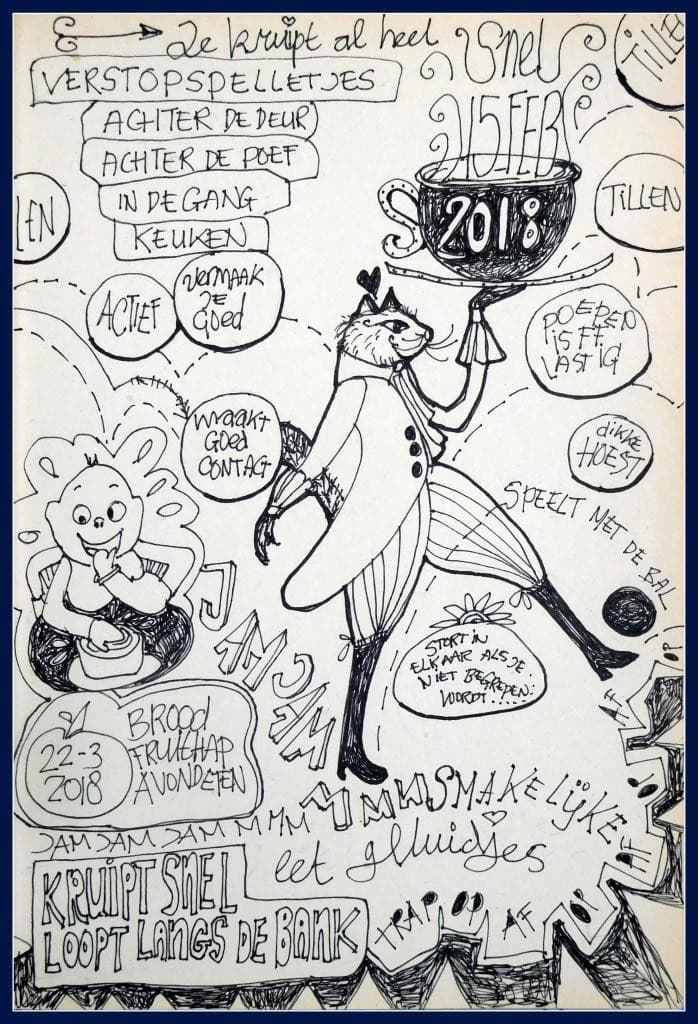 Je kruipt al heel
snel
15 FEB
2018
TILLEN
VERSTOPSPELLETJES
ACHTER DE DEUR
ACHTER DE POEF
IN DE GANG
KEUKEN
LEN
TILLEN
ACTIEF
VERMAAK
JE
GOED
POEPEN
IS FF
LASTIG
MAAKT
GOED
CONTACT
dikke
HOEST
SPEELT MET DE BAL
JAM JAM
STORT IN
ELKAAR ALS JE
NIET BEGREPEN
WORDT.....
22-3
2018
BROOD
FRUITHAP
AVONDETEN
JAM JAM JAM M MM M M M SMAKELIJKE
eet geluidjes
KRUIPT SNEL
LOOPT LANGS DE BANK
TRAP OP AF OP AF OP AF